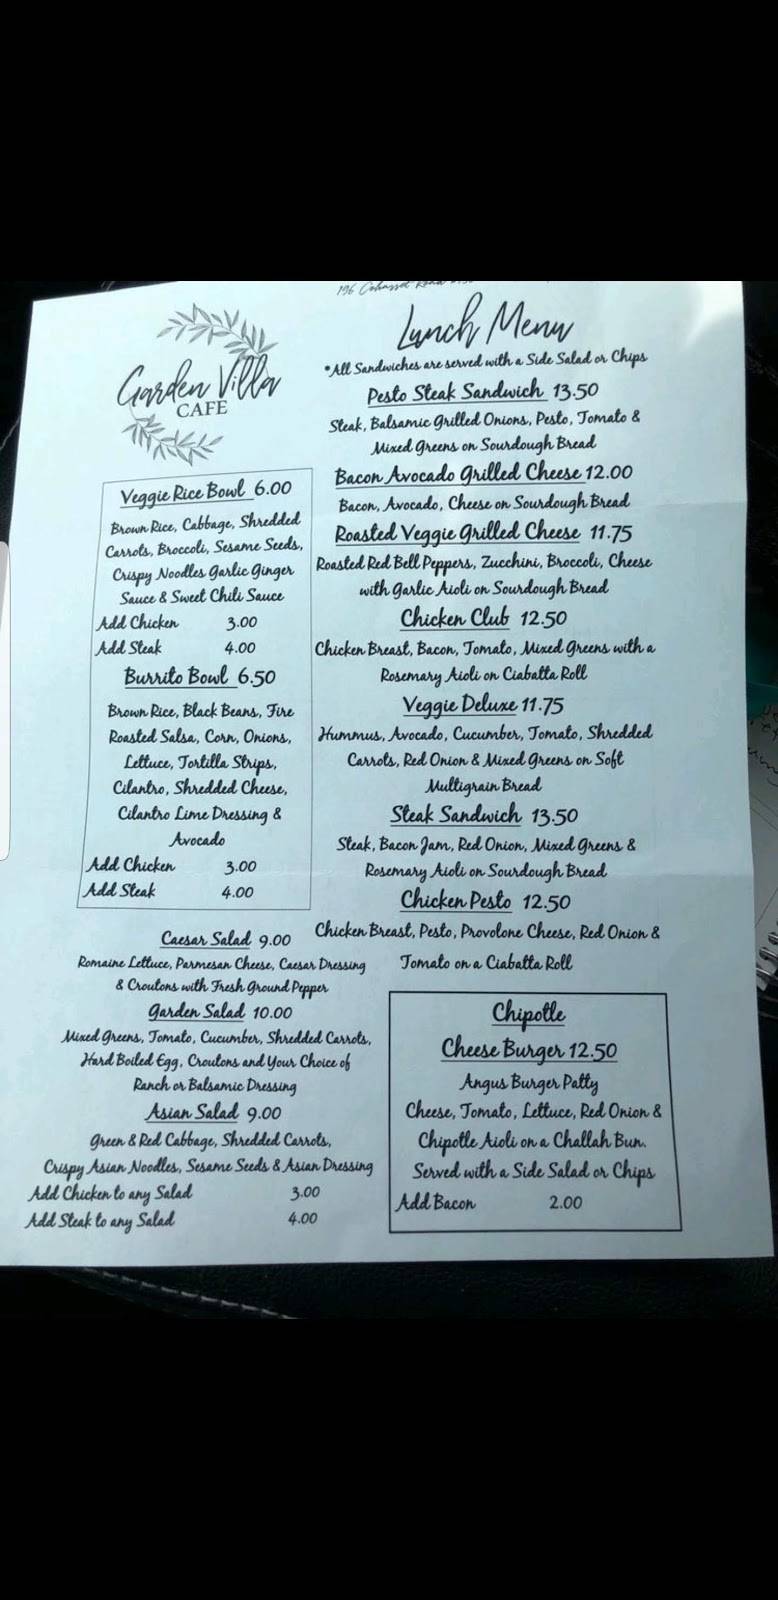 196 Cohasset Road
Garden Villa
CAFE
Veggie Rice Bowl 6.00
Brown Rice, Cabbage, Shredded
Carrots, Broccoli, Sesame Seeds,
Crispy Noodles Garlic Ginger
Sauce & Sweet Chili Sauce
Add Chicken 3.00
Add Steak 4.00
Burrito Bowl 6.50
Brown Rice, Black Beans, Fire
Roasted Salsa, Corn, Onions,
Lettuce, Tortilla Strips,
Cilantro, Shredded Cheese,
Cilantro Lime Dressing &
Avocado
Add Chicken 3.00
Add Steak 4.00
Caesar Salad 9.00
Romaine Lettuce, Parmesan Cheese, Caesar Dressing
& Croutons with Fresh Ground Pepper
Garden Salad 10.00
Mixed Greens, Tomato, Cucumber, Shredded Carrots,
Hard Boiled Egg, Croutons and Your Choice of
Ranch or Balsamic Dressing
Asian Salad 9.00
Green & Red Cabbage, Shredded Carrots,
Crispy Asian Noodles, Sesame Seeds & Asian Dressing
Add Chicken to any Salad 3.00
Add Steak to any Salad 4.00
Lunch Menu
*All Sandwiches are served with a Side Salad or Chips
Pesto Steak Sandwich 13.50
Steak, Balsamic Grilled Onions, Pesto, Tomato &
Mixed Greens on Sourdough Bread
Bacon Avocado Grilled Cheese 12.00
Bacon, Avocado, Cheese on Sourdough Bread
Roasted Veggie Grilled Cheese 11.75
Roasted Red Bell Peppers, Zucchini, Broccoli, Cheese
with Garlic Aioli on Sourdough Bread
Chicken Club 12.50
Chicken Breast, Bacon, Tomato, Mixed Greens with a
Rosemary Aioli on Ciabatta Roll
Veggie Deluxe 11.75
Hummus, Avocado, Cucumber, Tomato, Shredded
Carrots, Red Onion & Mixed Greens on Soft
Multigrain Bread
Steak Sandwich 13.50
Steak, Bacon Jam, Red Onion, Mixed Greens &
Rosemary Aioli on Sourdough Bread
Chicken Pesto 12.50
Chicken Breast, Pesto, Provolone Cheese, Red Onion &
Tomato on a Ciabatta Roll
Chipotle
Cheese Burger 12.50
Angus Burger Patty
Cheese, Tomato, Lettuce, Red Onion &
Chipotle Aioli on a Challah Bun.
Served with a Side Salad or Chips
Add Bacon 2.00